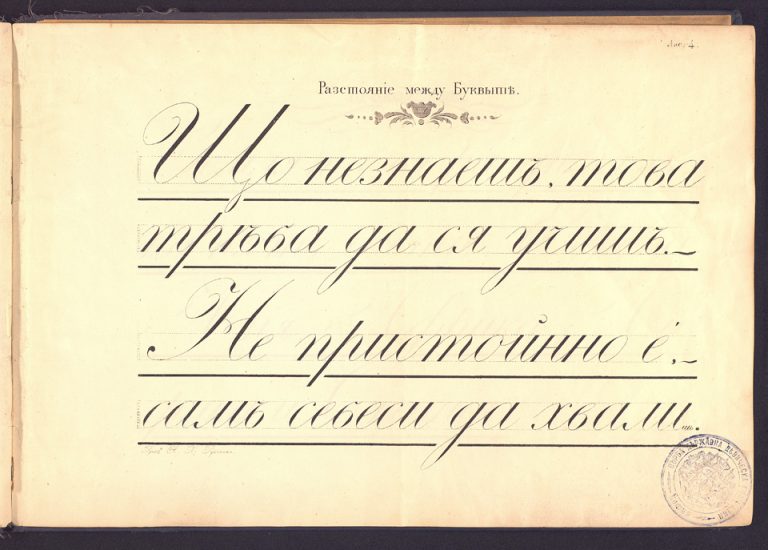 4.
Разстоянiе между Буквытѣ.
Що незнаешъ, това
трѣба да ся учишъ.
Не пристойнно é,
самъ себеси да хвалиш.